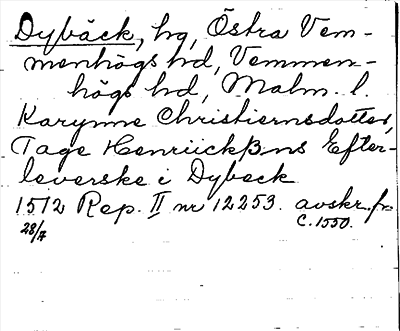 Dybäck, hg, Östra Vem-
menhögs hd, Vemmen-
högs hd, Malm. l.
Karynne Christiernsdotter,
Tage Henriickßøns Efter-
leverske i Dybeck
1512 Rep. II nr 12253. avskr. fr.
28/7 c. 1550.